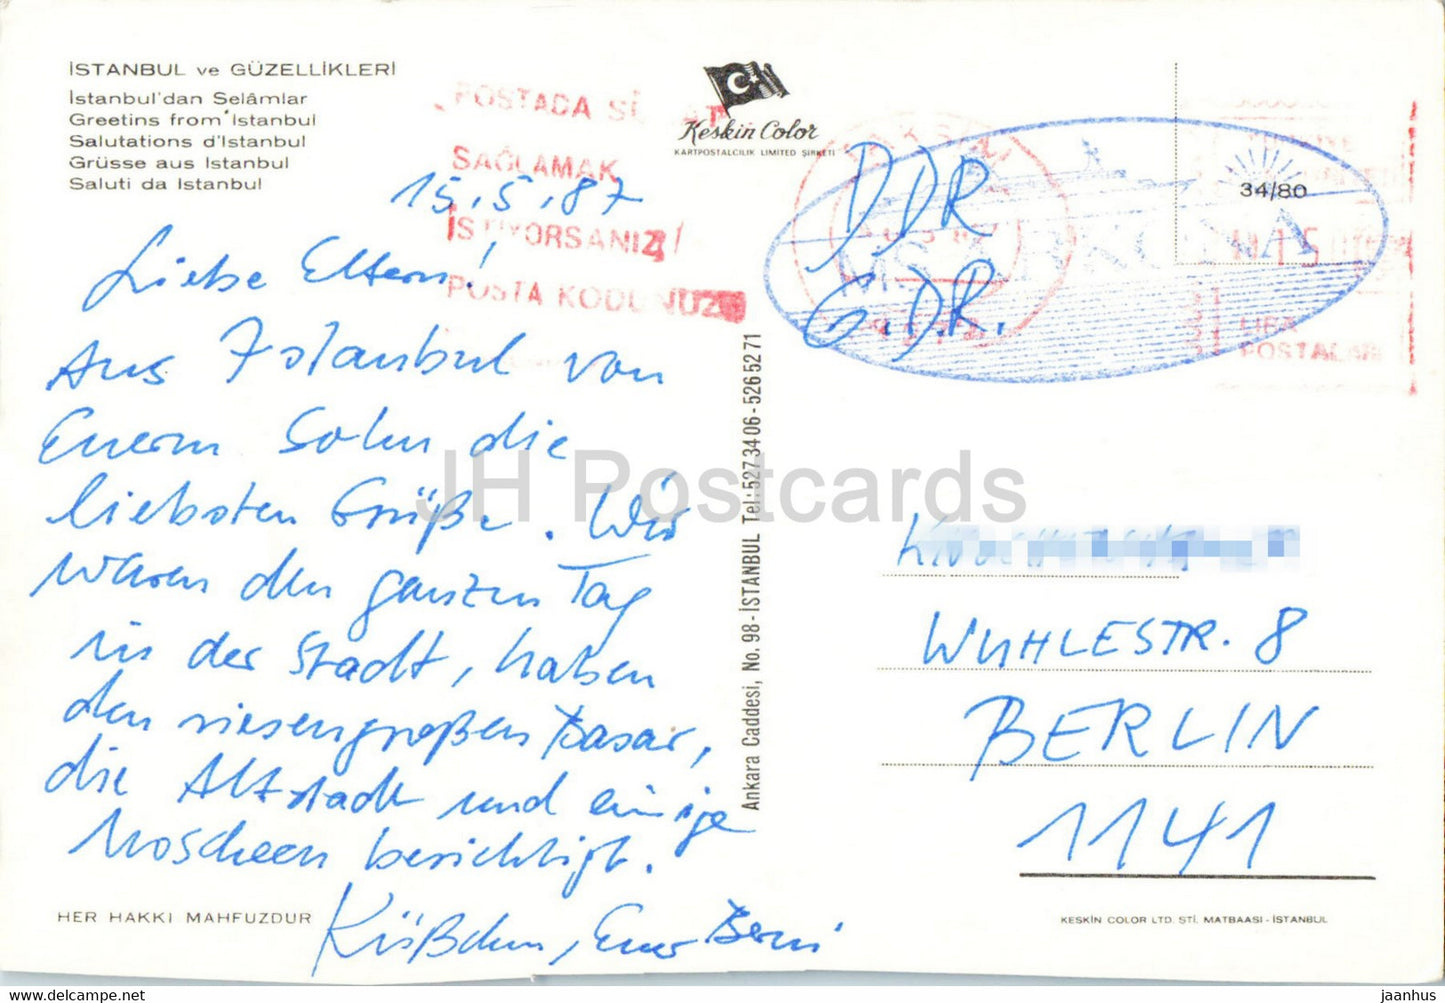 İSTANBUL ve GÜZELLİKLERİ
İstanbul'dan Selâmlar
Greetins from İstanbul
Salutations d'İstanbul
Grüsse aus İstanbul
Saluti da İstanbul
POSTADA
SAĞLAMAK
İSTİYORSANIZ
POSTA KODUNUZU
Keskin Color
KARTPOSTALCILIK LIMITED ŞİRKETİ
34/80
POSTALARI
15.5.87
Liebe Eltern!
Aus Istanbul von
Euerm Sohn die
liebsten Grüße. Wir
waren den ganzen Tag
in der Stadt, haben
den riesengroßen Basar,
die Altstadt und einige
Moscheen besichtigt.
Küßchen, Euer Berni
HER HAKKI MAHFUZDUR
Ankara Caddesi, No. 98 - İSTANBUL Tel: 527 34 06 - 526 52 71
DDR
G.D.R.
WUHLESTR. 8
BERLIN
1141
KESKİN COLOR LTD. ŞTİ. MATBAASI - İSTANBUL
JH Postcards
www.delcampe.net
jaanhus